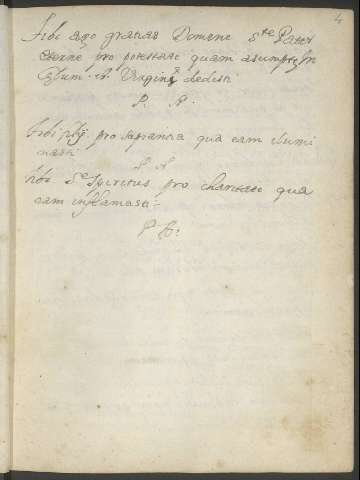 4
Tibi ago gratias Domine Ste Pater
eterne pro potestate quam asumptę In
Cęlum B. Virgini dedisti
P. A.
tibi filij pro sapientia qua eam ilumi
nasti
P A
tibi Se Spiritus pro charitate qua
eam inflamasti:
P A: